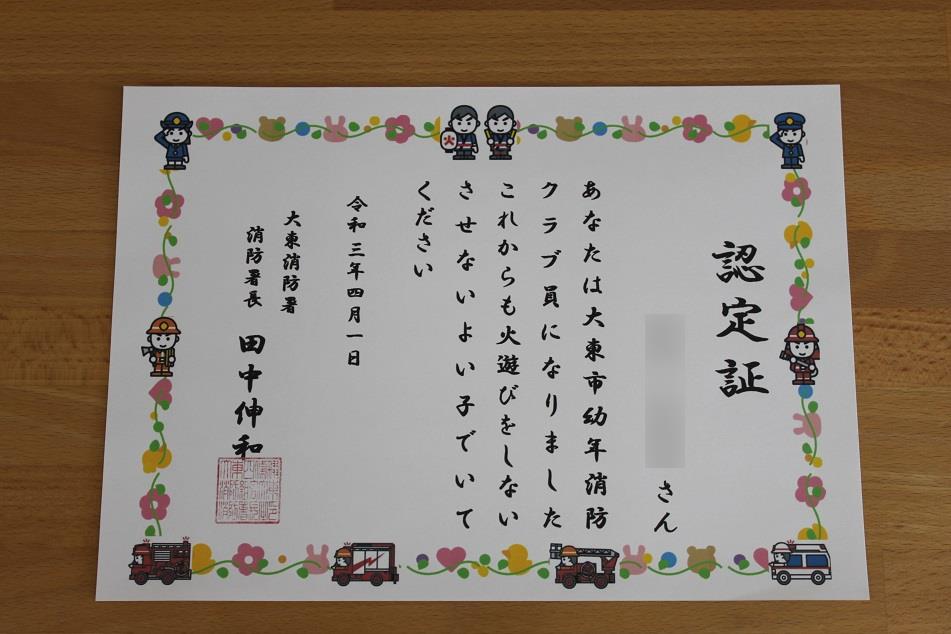 認定証
さん
あなたは大東市幼年消防
クラブ員になりました
これからも火遊びをしない
させないよい子でいて
ください
令和三年四月一日
大東消防署
消防署長 田中伸和
火